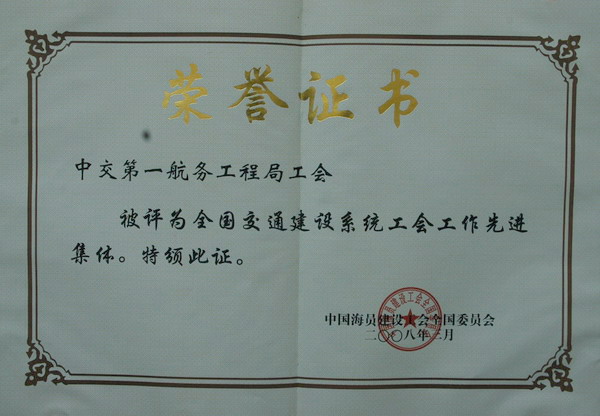 荣誉证书
中交第一航务工程局工会
被评为全国交通建设系统工会工作先进
集体。特颁此证。
中国海员建设工会全国委员会
二〇〇八年三月